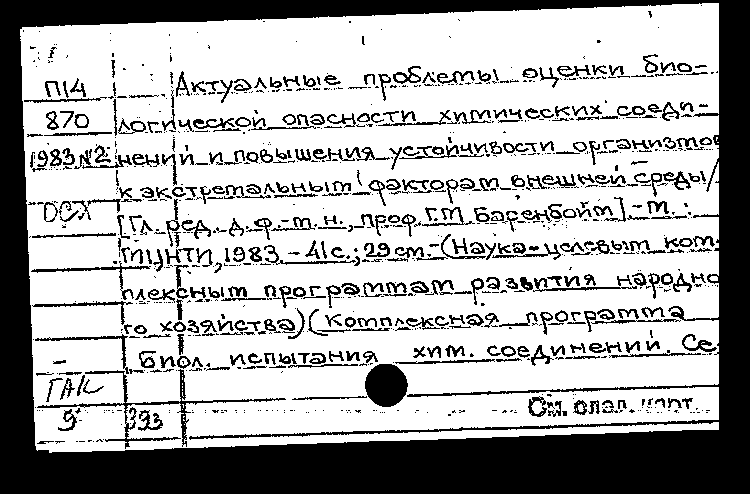 П14 Актуальные проблемы оценки био-
870 логической опасности химических соеди-
1983 №2 нений и повышения устойчивости организмов
к экстремальным факторам внешней среды/
ОСХ [Гл. ред. д.ф.-м.н., проф. Г.М. Баренбойм].-М.:
ГМЦНТИ, 1983.-41с.; 29см.-(Наука-целевым ком-
плексным программам развития народно
го хозяйства) (Комплексная программа
- Биол. испытания хим. соединений. Се-
ГАК
9 393 См. след. карт.